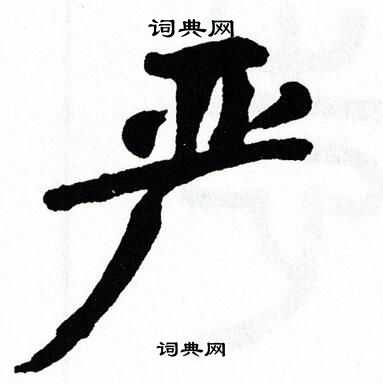 词典网
严
词典网